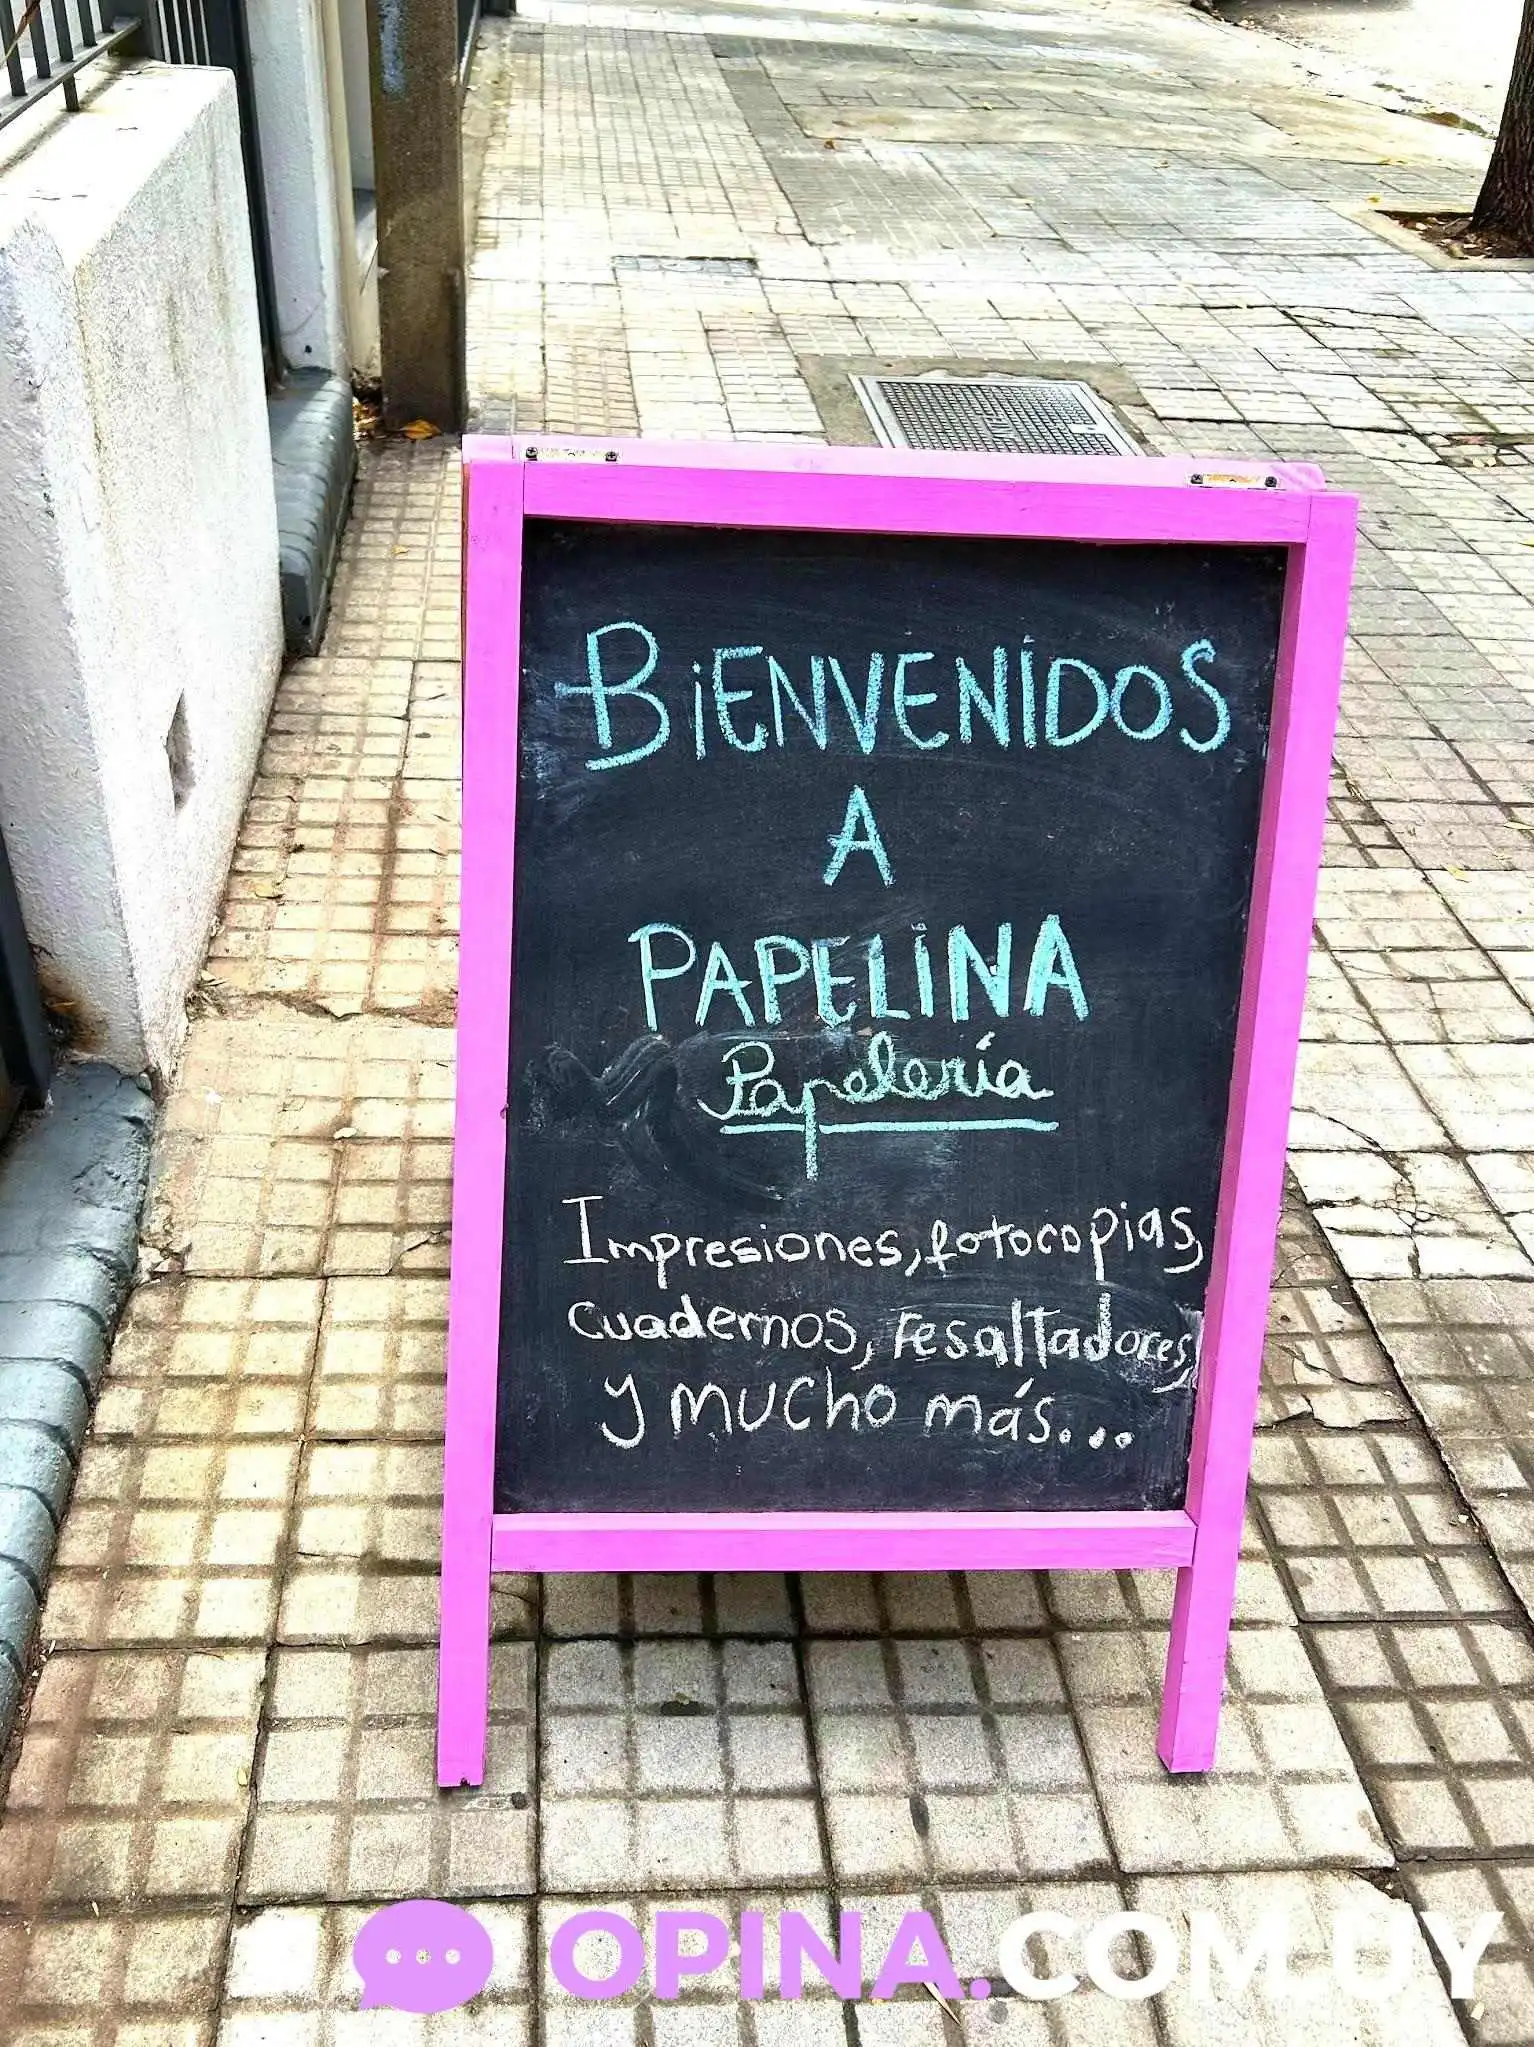 BiENVENIDOS
A
PAPELiNA
Papelería
Impresiones, fotocopias,
cuadernos, resaltadores,
y mucho más...
OPINA.COM.UY